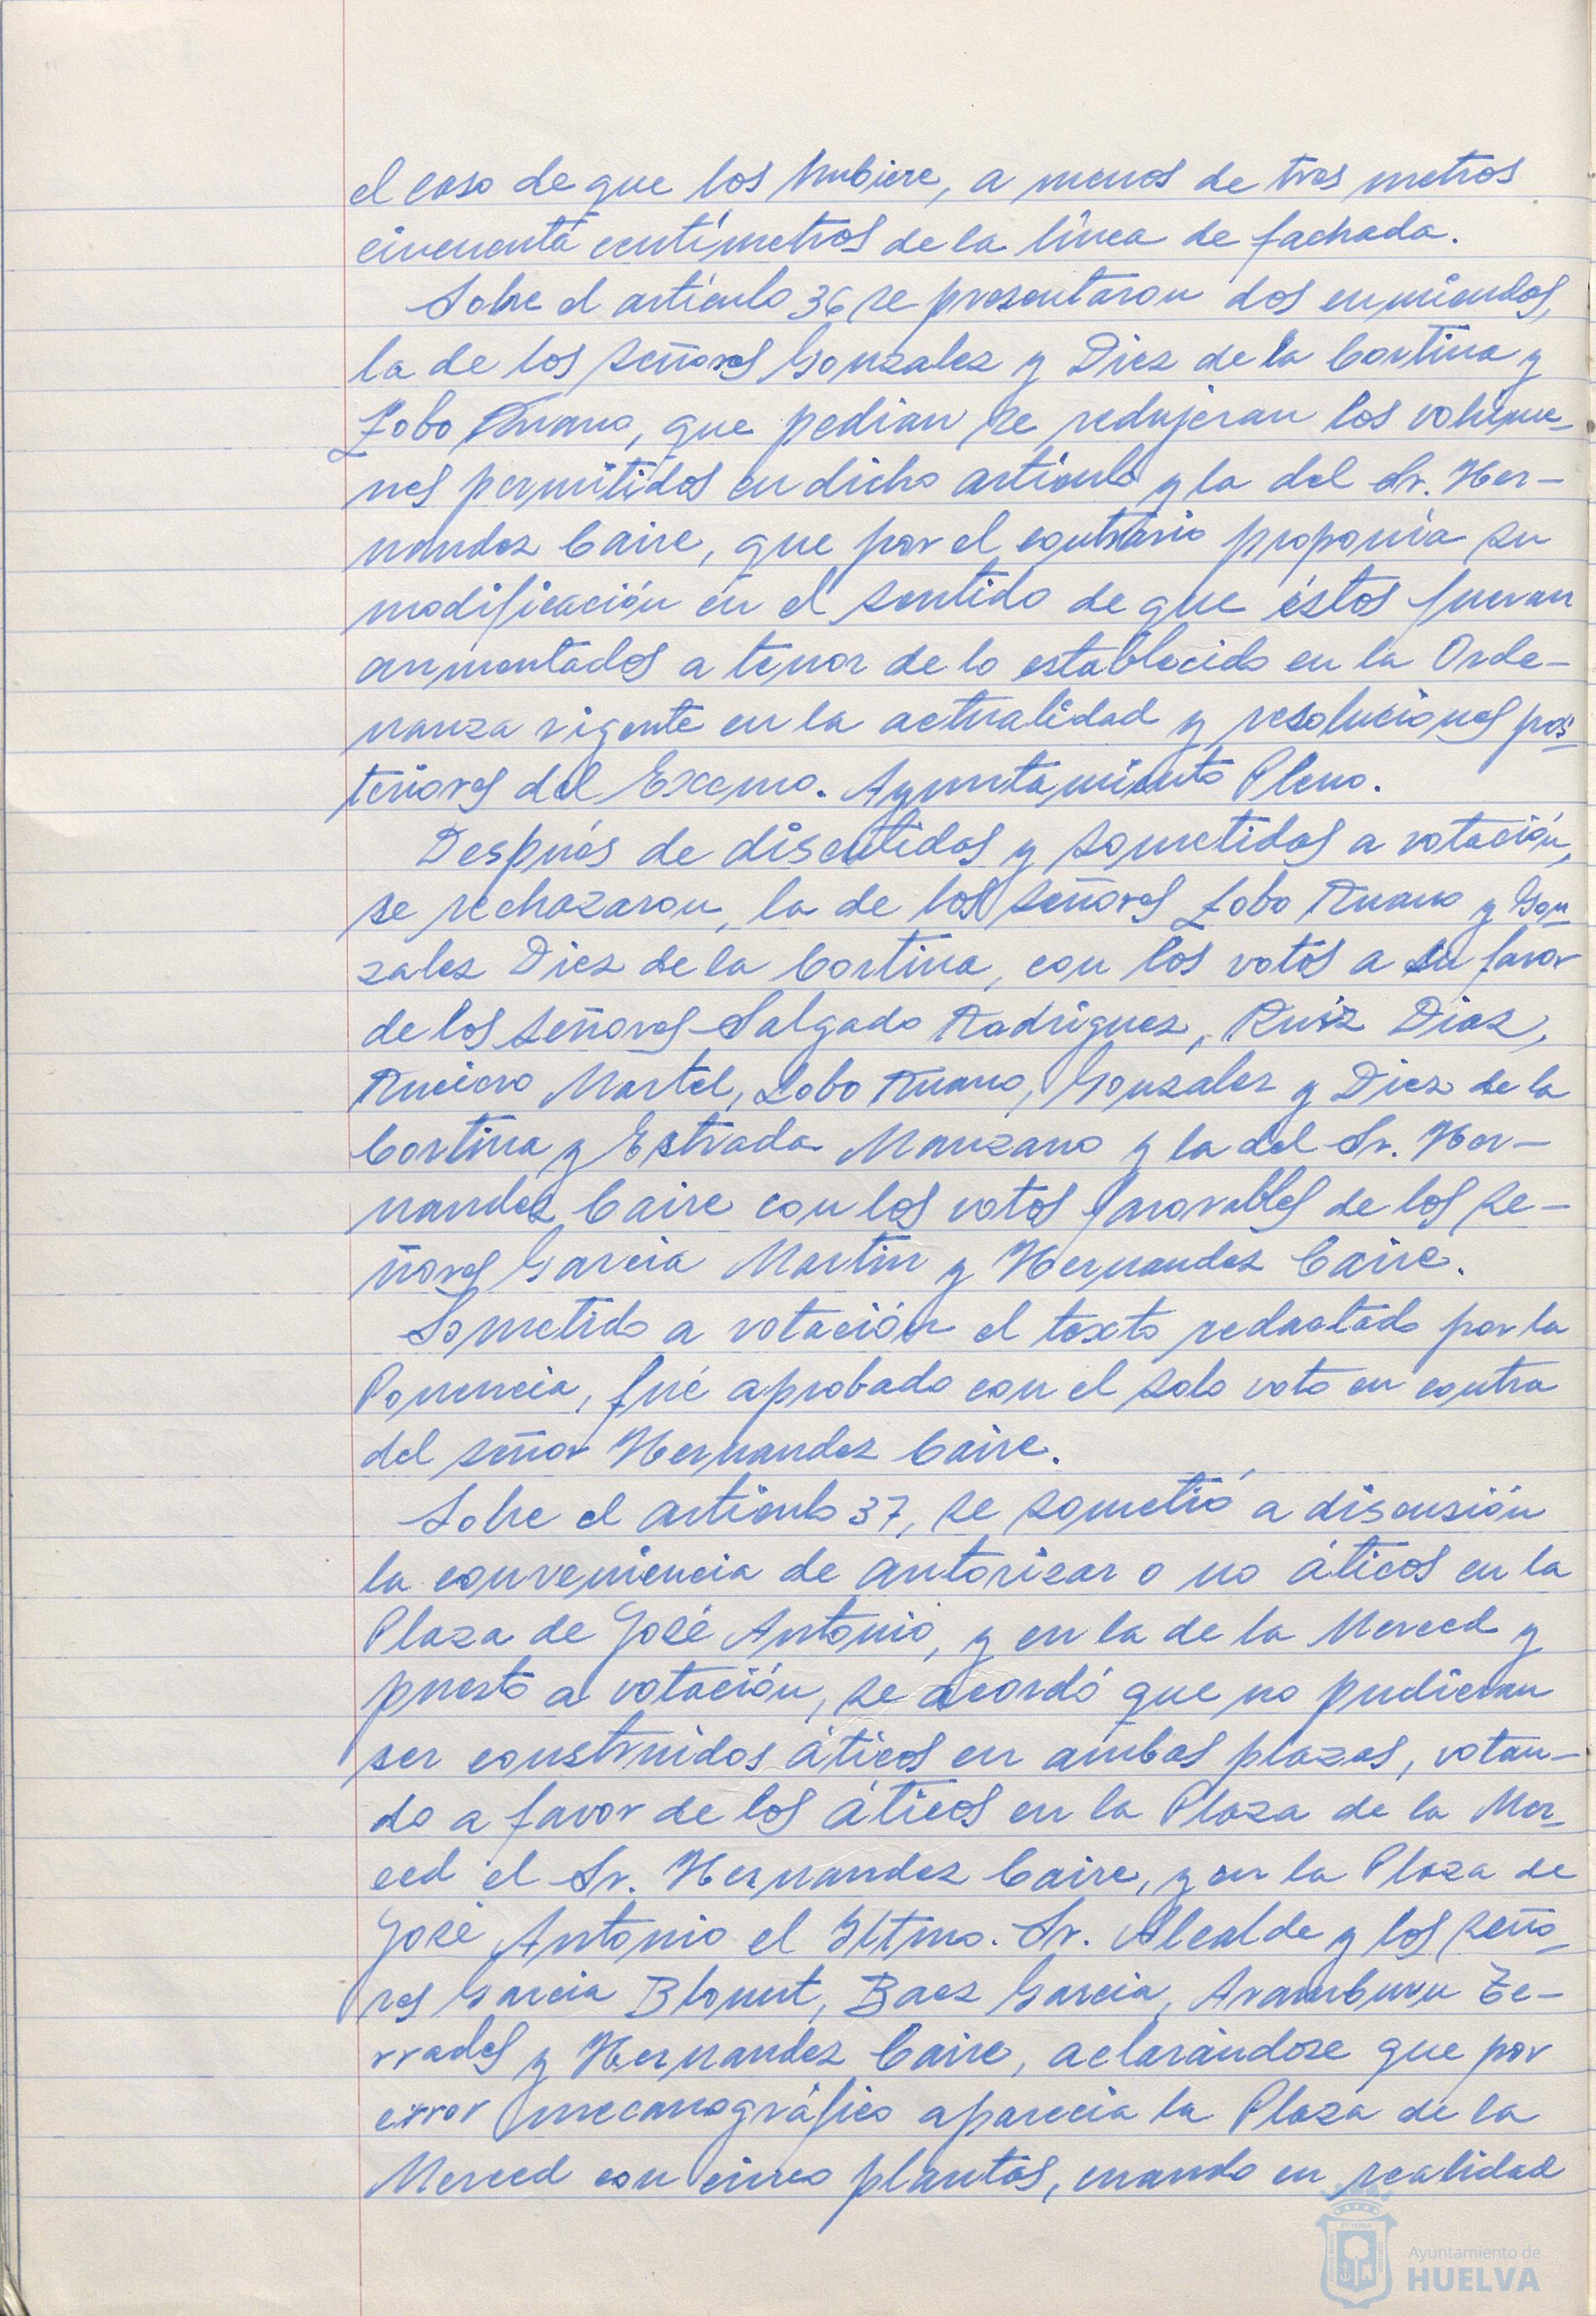 el caso de que los hubiere, a menos de tres metros
cincuenta centímetros de la línea de fachada.
Sobre el artículo 36 se presentaron dos enmiendas,
la de los señores Gonzalez y Diez de la Cortina y
Lobo Ruano, que pedian se redujeran los volúme-
nes permitidos en dicho artículo y la del Sr. Her-
nandez Caire, que por el contrario proponía su
modificación en el sentido de que éstos fueran
aumentados a tenor de lo establecido en la Orde-
nanza vigente en la actualidad y resoluciones pos-
teriores del Excmo. Ayuntamiento Pleno.
Después de discutidas y sometidas a votación,
se rechazaron, la de los señores Lobo Ruano y Gon-
zalez Diez de la Cortina, con los votos a su favor
de los señores Salgado Rodríguez, Ruiz Diaz,
Ruciero Martel, Lobo Ruano, Gonzalez y Diez de la
Cortina y Estrada Manzano y la del Sr. Her-
nandez Caire con los votos favorables de los se-
ñores Garcia Martin y Hernandez Caire.
Sometido a votación el texto redactado por la
Ponencia, fué aprobado con el solo voto en contra
del señor Hernandez Caire.
Sobre el artículo 37, se sometió a discusión
la conveniencia de autorizar o no áticos en la
Plaza de José Antonio, y en la de la Merced y
puesto a votación, se acordó que no pudieran
ser construidos áticos en ambas plazas, votan-
do a favor de los áticos en la Plaza de la Mer-
ced el Sr. Hernandez Caire, y en la Plaza de
José Antonio el Iltmo. Sr. Alcalde y los seño-
res Garcia Blount, Baez Garcia, Aramburu Te-
rrades y Hernandez Caire, aclarándose que por
error mecanográfico aparecia la Plaza de la
Merced con cinco plantas, cuando en realidad
Ayuntamiento de
HUELVA